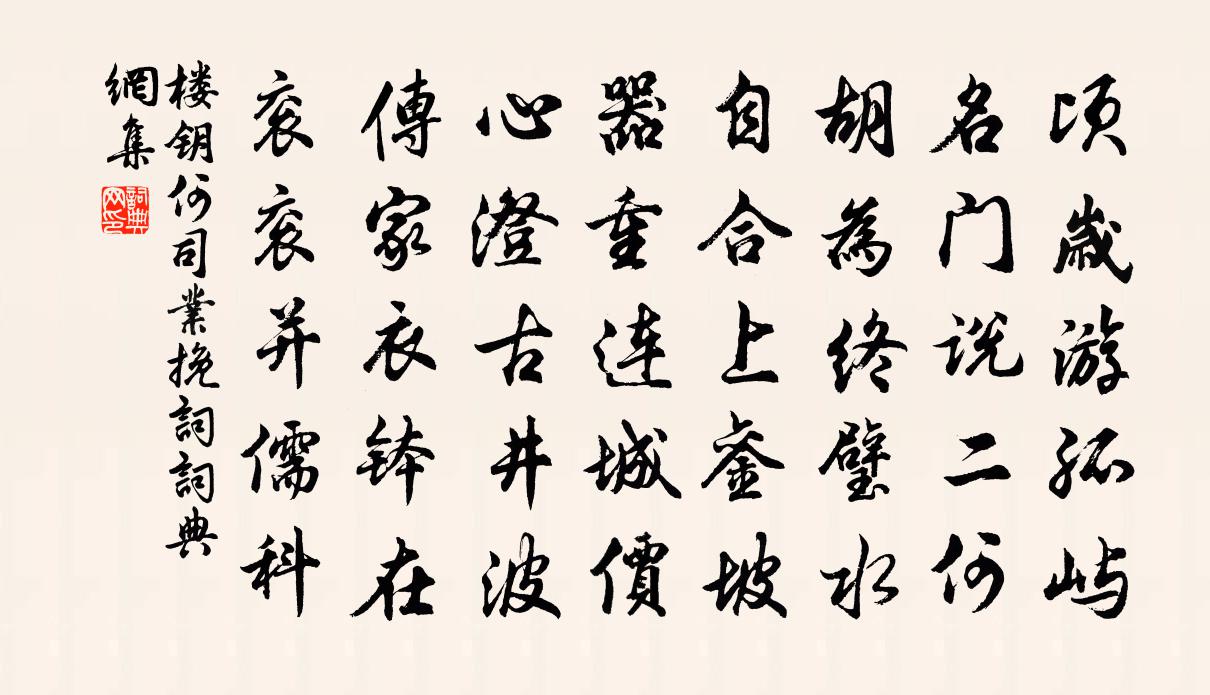 顷歲游孤屿
名门说二何
胡為终璧水
自合上銮坡
器重连城價
心澄古井波
傳家衣钵在
衮衮并儒科
楼钥何司業挽詞詞典
網集
詞典网印